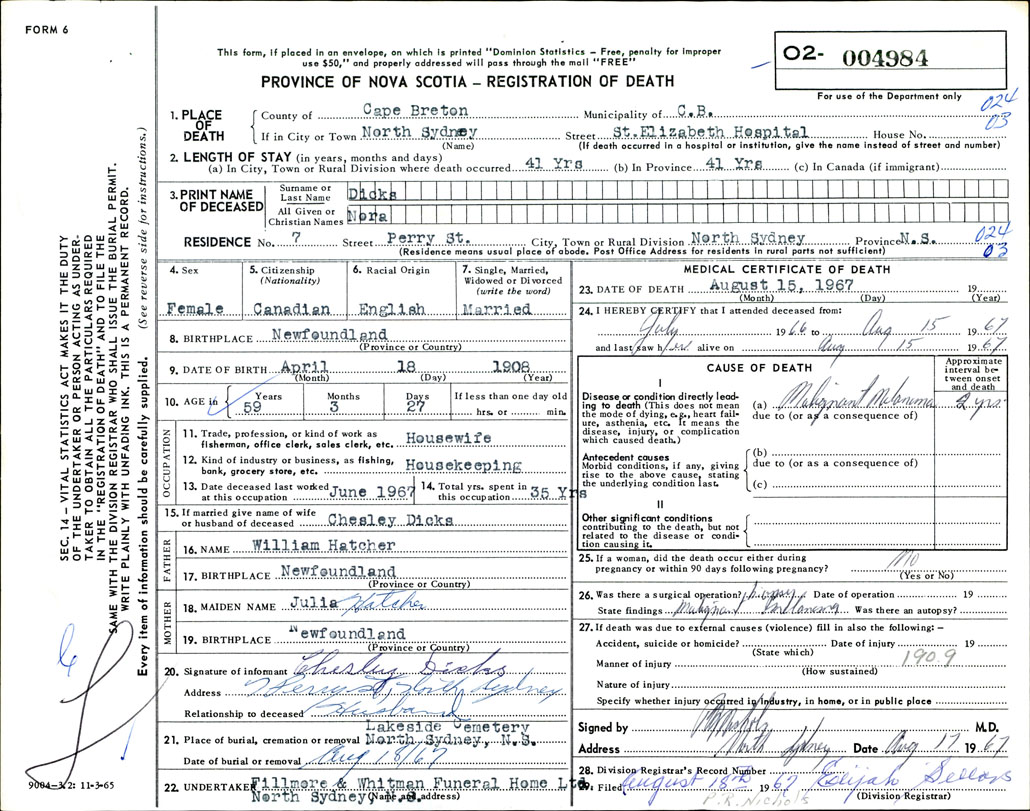 FORM 6
This form, if placed in an envelope, on which is printed "Dominion Statistics – Free, penalty for improper
use $50," and properly addressed will pass through the mail "FREE"
PROVINCE OF NOVA SCOTIA – REGISTRATION OF DEATH
02- 004984
For use of the Department only
024
03
1. PLACE OF DEATH
County of Cape Breton Municipality of C.B.
If in City or Town North Sydney Street St.Elizabeth Hospital House No.
(Name) (If death occurred in a hospital or institution, give the name instead of street and number)
2. LENGTH OF STAY (in years, months and days)
(a) In City, Town or Rural Division where death occurred 41 Yrs (b) In Province 41 Yrs (c) In Canada (if immigrant)
3. PRINT NAME OF DECEASED
Surname or Last Name Dicks
All Given or Christian Names Nora
RESIDENCE No. 7 Street Perry St. City, Town or Rural Division North Sydney Province N.S.
(Residence means usual place of abode. Post Office Address for residents in rural parts not sufficient)
024
03
4. Sex
Female
5. Citizenship
(Nationality)
Canadian
6. Racial Origin
English
7. Single, Married,
Widowed or Divorced
(write the word)
Married
8. BIRTHPLACE Newfoundland
(Province or Country)
9. DATE OF BIRTH April 18 1908
(Month) (Day) (Year)
10. AGE in Years Months Days If less than one day old
59 3 27 hrs. or min.
OCCUPATION
11. Trade, profession, or kind of work as
fisherman, office clerk, sales clerk, etc. Housewife
12. Kind of industry or business, as fishing,
bank, grocery store, etc. Housekeeping
13. Date deceased last worked
at this occupation June 1967
14. Total yrs. spent in
this occupation 35 Yrs
15. If married give name of wife
or husband of deceased Chesley Dicks
FATHER
16. NAME William Hatcher
17. BIRTHPLACE Newfoundland
(Province or Country)
MOTHER
18. MAIDEN NAME Julia Hatcher
19. BIRTHPLACE Newfoundland
(Province or Country)
20. Signature of informant Chesley Dicks
Address North Sydney
Relationship to deceased Husband
21. Place of burial, cremation or removal Lakeside Cemetery
North Sydney, N.S.
Date of burial or removal Aug 18/67
22. UNDERTAKER Fillmore & Whitman Funeral Home Ltd.
North Sydney
(Name and address)
MEDICAL CERTIFICATE OF DEATH
23. DATE OF DEATH August 15, 1967 19
(Month) (Day) (Year)
24. I HEREBY CERTIFY that I attended deceased from:
July 1966 to Aug 15 1967
and last saw her alive on Aug 15 1967
CAUSE OF DEATH
Approximate interval between onset and death
I
Disease or condition directly leading to death (This does not mean the mode of dying, e.g., heart failure, asthenia, etc. It means the disease, injury, or complication which caused death.)
(a) Malignant Melanoma 2 yrs
due to (or as a consequence of)
Antecedent causes
Morbid conditions, if any, giving rise to the above cause, stating the underlying condition last.
(b)
due to (or as a consequence of)
(c)
II
Other significant conditions
contributing to the death, but not related to the disease or condition causing it.
25. If a woman, did the death occur either during
pregnancy or within 90 days following pregnancy? No
(Yes or No)
26. Was there a surgical operation? Date of operation 19
State findings Malignant Melanoma Was there an autopsy?
27. If death was due to external causes (violence) fill in also the following:–
Accident, suicide or homicide? Date of injury 19
(State which)
Manner of injury 190.9
(How sustained)
Nature of injury
Specify whether injury occurred in industry, in home, or in public place
Signed by M.D.
Address North Sydney Date Aug 17 1967
28. Division Registrar's Record Number
29. Filed August 18th 1967 Elijah Sellars
(Division Registrar)
P.R. Nichols
SEC. 14 – VITAL STATISTICS ACT MAKES IT THE DUTY
OF THE UNDERTAKER OR PERSON ACTING AS UNDER-
TAKER TO OBTAIN ALL THE PARTICULARS REQUIRED
IN THE "REGISTRATION OF DEATH" AND TO FILE THE
SAME WITH THE DIVISION REGISTRAR WHO SHALL ISSUE THE BURIAL PERMIT.
WRITE PLAINLY WITH UNFADING INK. THIS IS A PERMANENT RECORD.
Every item of information should be carefully supplied. (See reverse side for instructions.)